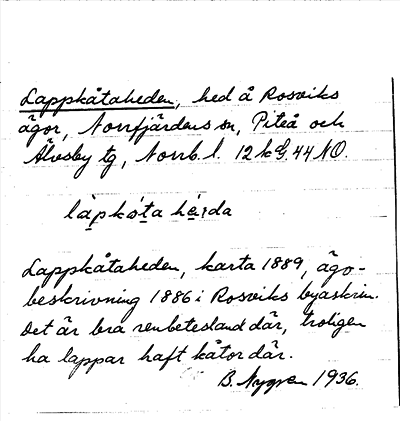 Lappkåtaheden, hed å Rosviks
ägor, Norrfjärdens sn, Piteå och
Älvsby tg, Norrb. l. 12 k G. 44 NO.
làpkó̀ta hèı̀da
Lappkåtaheden, karta 1889, ägo-
beskrivning 1886 i Rosviks byaskrin.
Det är bra renbetesland där, troligen
ha lappar haft kåtor där.
B. Nygren 1936.